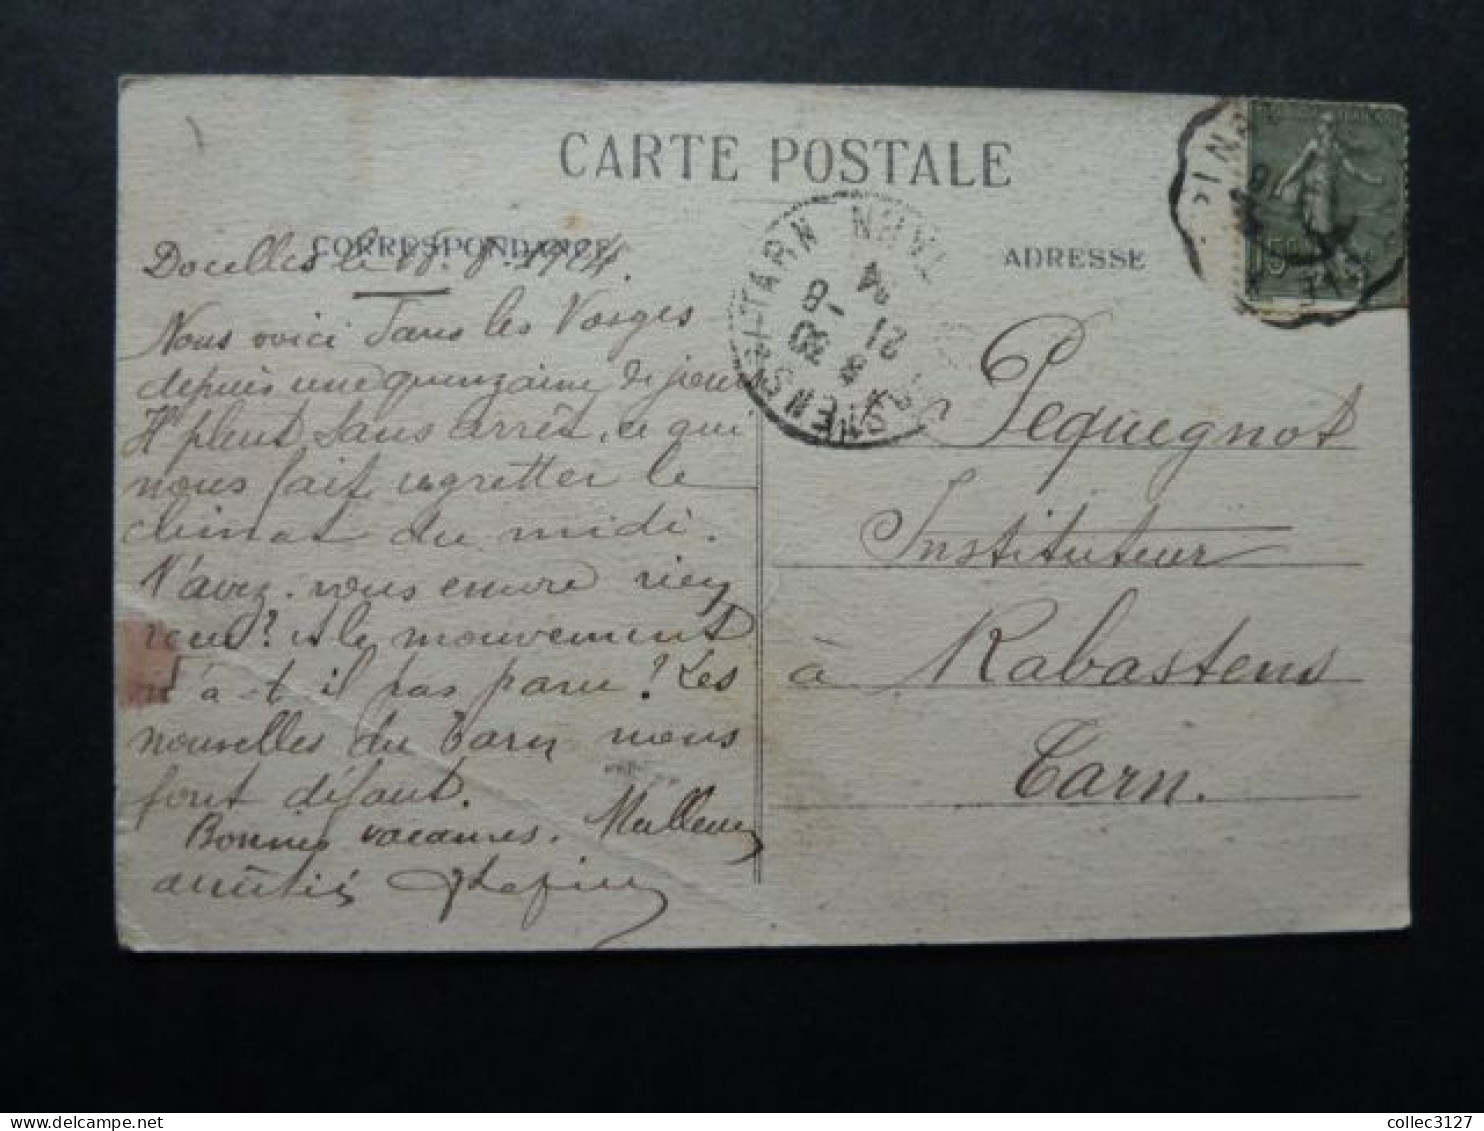 CARTE POSTALE
CORRESPONDANCE
ADRESSE
Docelles le 18. 8. 1924.
Nous voici dans les Vosges
depuis une quinzaine de jours
Il pleut sans arrêt, ce qui
nous fait regretter le
climat du midi.
N'avez-vous encore rien
reçu? et le mouvement
n'a-t-il pas paru? Les
nouvelles du Tarn nous
font défaut.
Bonnes vacances. Meilleures
amitiés
Pequegnot
Instituteur
à Rabastens
Tarn.
TARN
21 -8
24
8 30
15c
collec3127